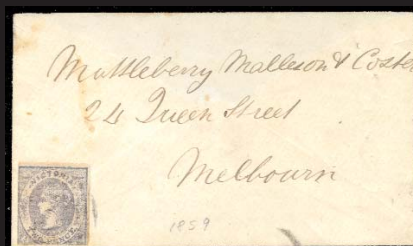 Mattleberry Malleson & Coster
24 Queen Street
Melbourn
VICTORIA
1859